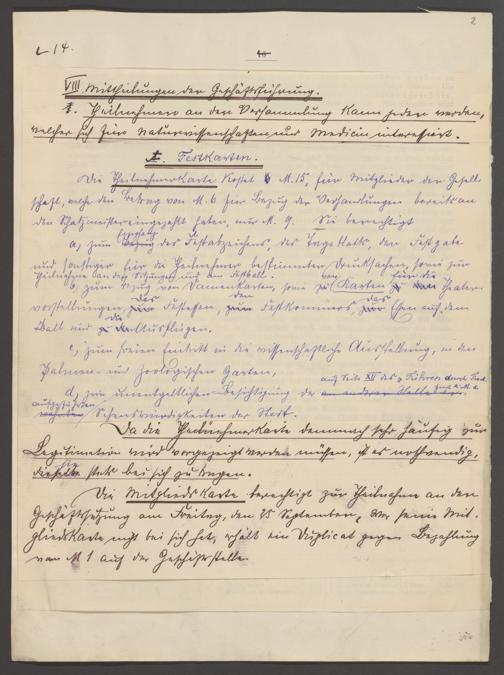 2
L 14.
10
VIII Mittheilungen der Geschäftsführung.
1. Theilnehmer an der Versammlung kann jeder werden,
welcher sich für Naturwissenschaften und Medicin interessirt.
I. Festkarten.
Die Theilnehmerkarte kostet M. 15, für Mitglieder der Gesell-
schaft, welche den Betrag von M. 6 zum Bezug der Verhandlungen bereits an
den Schatzmeister eingezahlt haben, nur M. 9. Sie berechtigt
a, zum Empfang des Festabzeichens, des Tageblatts, der Festgabe
und sonstiger für die Theilnehmer bestimmten Drucksachen, sowie zur
Theilnahme an den Sitzungen und am Festball.
b, zum Bezug von Damenkarten, sowie von Karten für die Theater-
vorstellungen, das Festessen, den Festkommers, das Essen auf dem
Ball und die Ausflügen.
c, zum freien Eintritt in die wissenschaftliche Ausstellung, in den
Palmen- und Zoologischen Garten,
d, zur unentgeltlichen Besichtigung der auf Seite XII des Führers
aufgeführten Sehenswürdigkeiten der Stadt.
Da die Theilnehmerkarte demnach sehr häufig zur
Legitimation wird vorgezeigt werden müssen, ist es nothwendig,
sie stets bei sich zu tragen.
Die Mitgliedskarte berechtigt zur Theilnahme an der
Geschäftssitzung am Freitag, den 25 September. Wer seine Mit-
gliedskarte nicht bei sich hat, erhält ein Duplicat gegen Bezahlung
von M 1 auf der Geschäftsstelle.